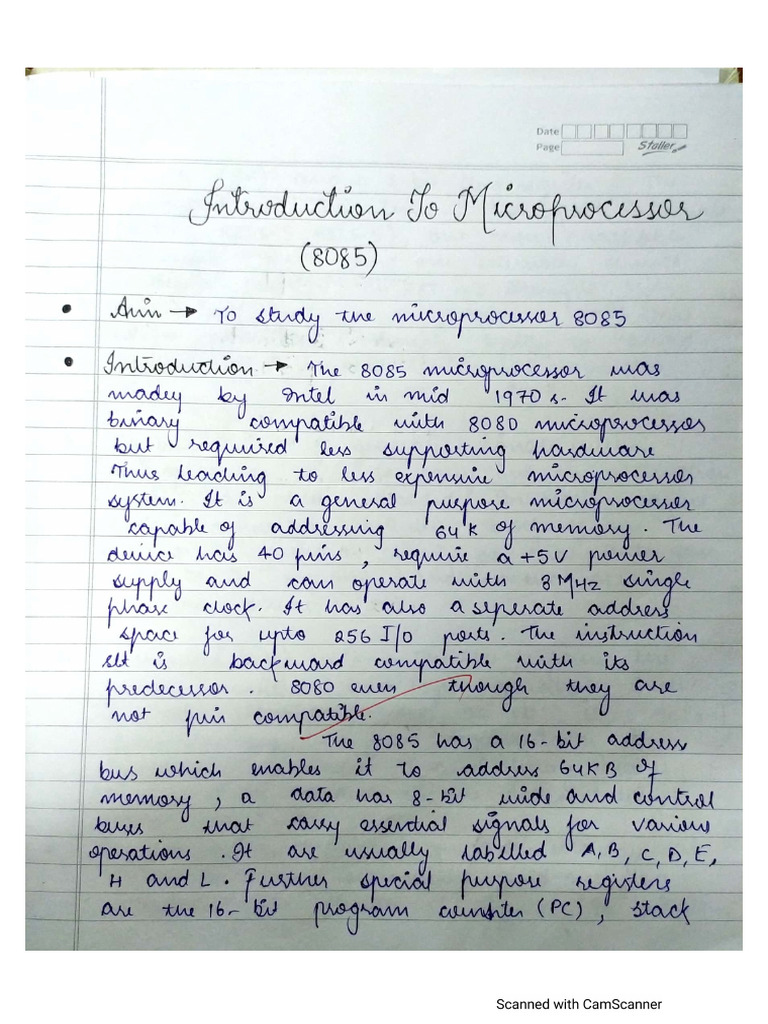 Date
Page
Staller
Introduction To Microprocessor
(8085)
• Aim → To study the microprocessor 8085
• Introduction → The 8085 microprocessor was
madey by Intel in mid 1970s. It was
binary compatible with 8080 microprocessor
but required less supporting hardware
Thus leading to less expensive microprocessor
system. It is a general purpose microprocessor
capable of addressing 64K of memory. The
device has 40 pins, require a +5V power
supply and can operate with 3MHz single
phase clock. It has also a seperate address
space for upto 256 I/O ports. The instruction
set is backward compatible with its
predecessor. 8080 even though they are
not pin compatible.
The 8085 has a 16-bit address
bus which enables it to address 64KB of
memory, a data has 8-bit wide and control
buses that carry essential signals for various
operations. It are usually labelled A, B, C, D, E,
H and L. Further special purpose registers
are the 16-bit program counter (PC), stack
Scanned with CamScanner